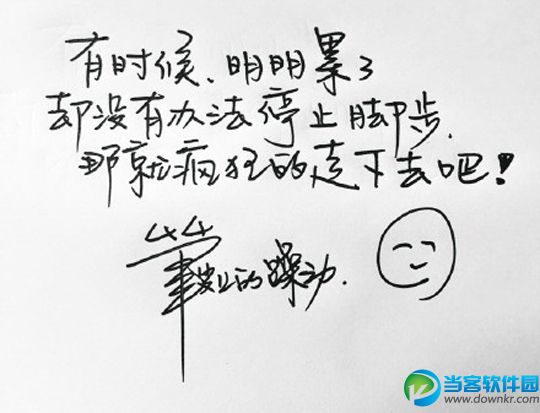 有时候、明明累了
却没有办法停止脚步.
那就疯狂的走下去吧!
的躁动.
当客软件园
www.downkr.com